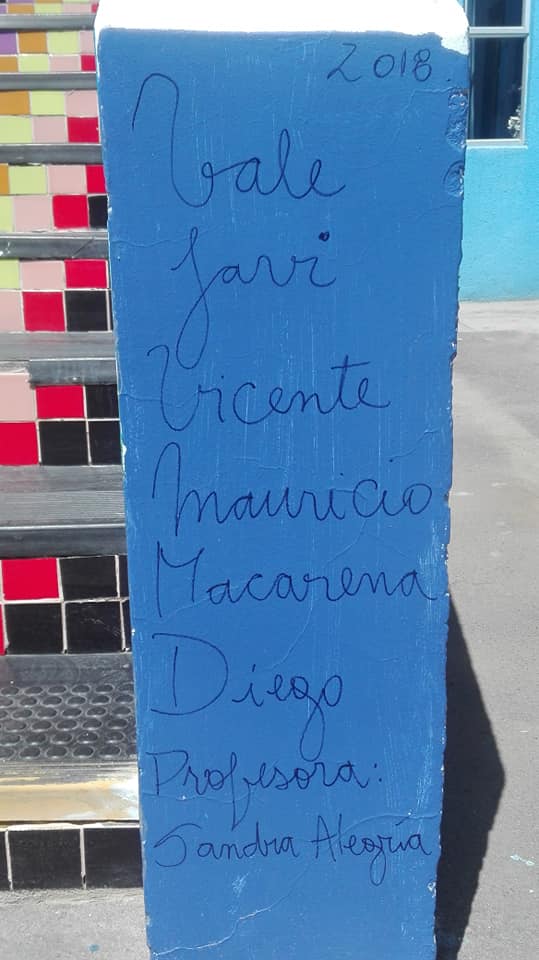 2018.
Vale
Javi
Vicente
Mauricio
Macarena
Diego
Profesora:
Sandra Alegría